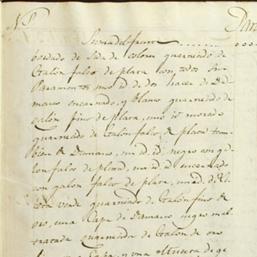 Suma del frente
bordado de Seda de colores guarnecido de
Galon falso de plata con todos sus
Paramentos mas id de dos haces de Da
masco encarnado, y blanco guarnecido de
galon fino de plata, mas id morado
guarnecido de Galon falso de plata tam
bien de Damasco, mas id negro con ga
lon falso de plata, mas id encarnado
con galon falso de plata, mas id de
verde guarnecido de Galon fino de
oro, una Capa de Damasco negro mal
tratada guarnecida de Galon de oro
Capa, y una